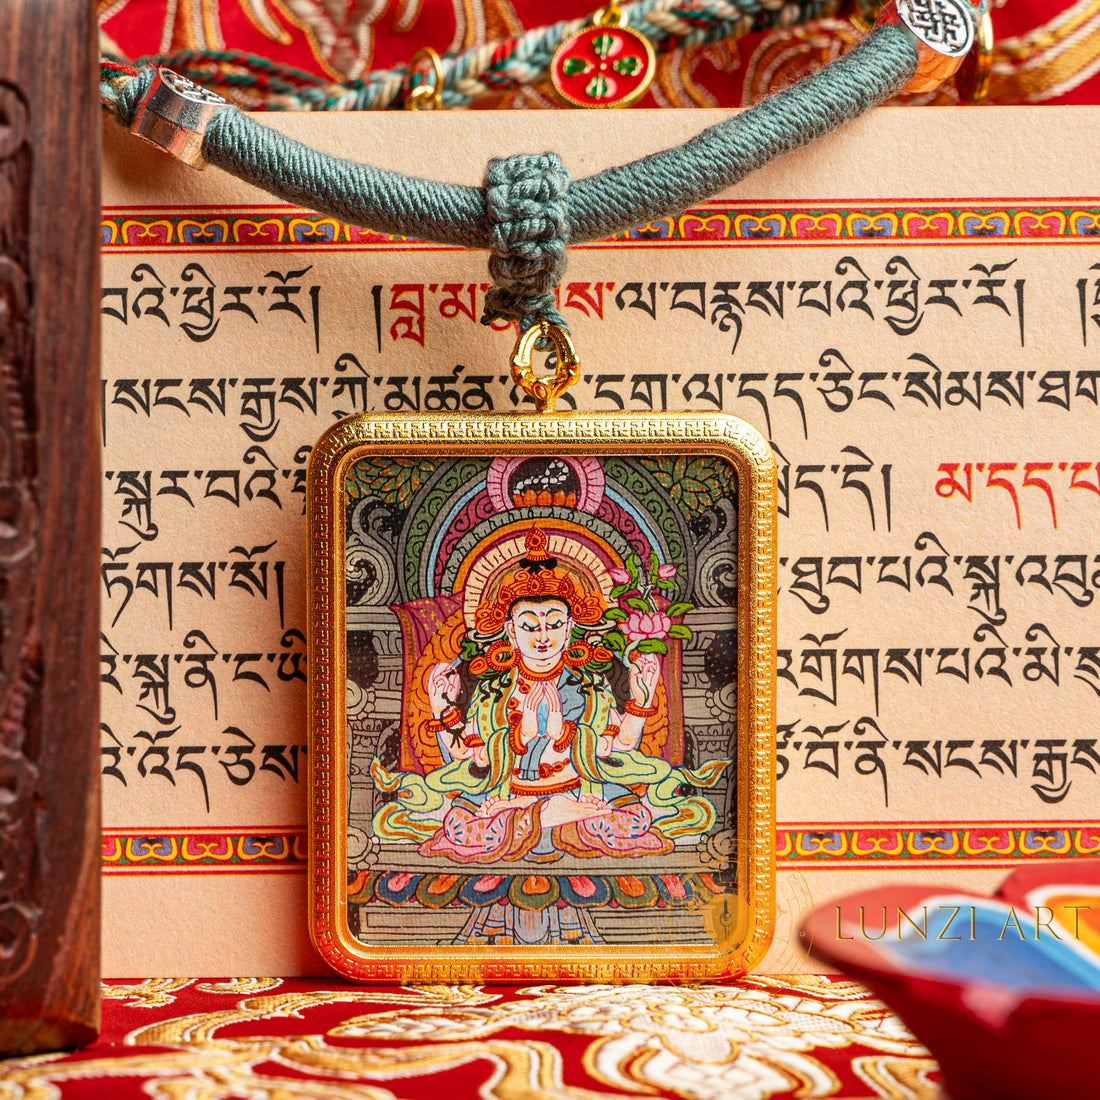 བའི་ཕྱིར་རོ། །བླ་མ་ ལ་བརྙས་པའི་ཕྱིར་ རོ།
སངས་རྒྱས་ཀྱི་མཚན་ དག་ལ་དད་ཅིང་སེམས་ཐག
སྐུར་བའི་ དེ། མ་དད་པ
གས་སོ། ཐུབ་པའི་སྐུ་འབུ
སྐུ་ནི་ང་ཡི འགྲོགས་པའི་མི་ས
འོད་ཅེས བོ་ནི་སངས་རྒྱས
LUNZI ART